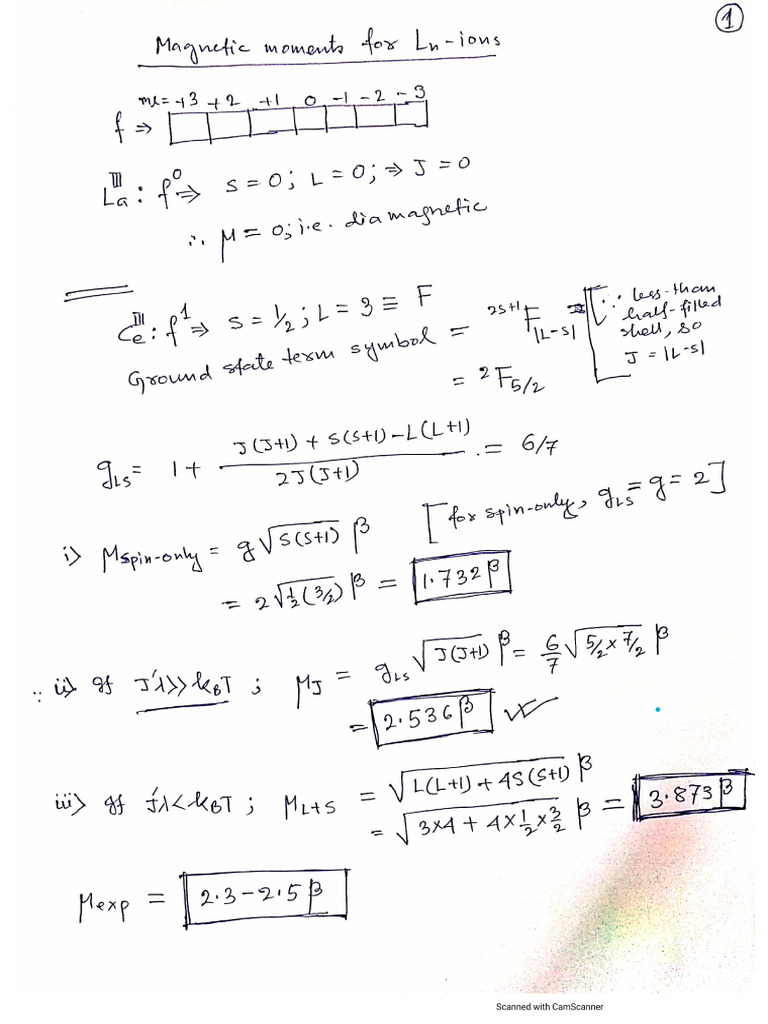 ①
Magnetic moments for Ln-ions
ml = +3 +2 +1 0 -1 -2 -3
f ⇒
La^III : f^0 ⇒ S = 0 ; L = 0 ; ⇒ J = 0
∴ μ = 0; i.e. diamagnetic
Ce^III : f^1 ⇒ S = 1/2 ; L = 3 ≡ F
Ground state term symbol = ^(2S+1)F_|L-S| [∵ less-than
half-filled
shell, so
J = |L-S|
= ^2F_5/2
g_LS = 1 + (J(J+1) + S(S+1) - L(L+1)) / (2J(J+1)) = 6/7
i) μ_spin-only = g√(S(S+1)) β [for spin-only, g_LS = g = 2]
= 2√(1/2(3/2)) β = 1.732 β
∵ ii) If J'λ >> k_BT ; μ_J = g_LS √(J(J+1)) β = 6/7 √(5/2 × 7/2) β
= 2.536 β ✓
iii) If J'λ < k_BT ; μ_L+S = √(L(L+1) + 4S(S+1)) β
= √(3×4 + 4×1/2×3/2) β = 3.873 β
μ_exp = 2.3 - 2.5 β
Scanned with CamScanner